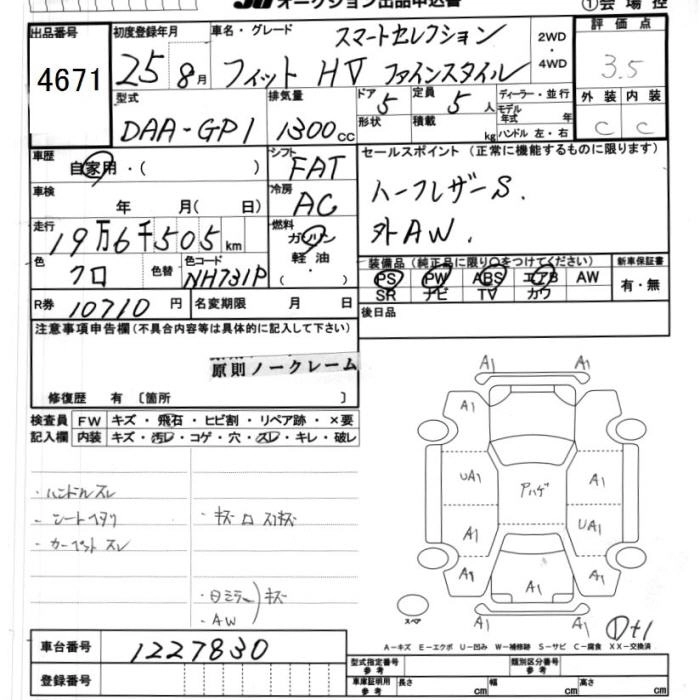 オークション出品申込書 ①会場控
出品番号 初度登録年月 車名・グレード スマートセレクション 2WD・4WD 評価点
4671 25 8月 フィット HV ファインスタイル 3.5
型式 排気量 ドア 5 定員 5人 ディーラー・並行 外装 内装
DAA-GP1 1300cc 形状 積載 kg モデル年式 年 ハンドル 左・右 C C
車歴 シフト セールスポイント(正常に機能するものに限ります)
自家用・( ) FAT ハーフレザーS.
車検 冷房
年 月( 日) AC 外AW.
走行 燃料
19万6千505km ガソリン
軽油
・( )
色 色替 色コード 装備品(純正品に限り○をつけてください) 新車保証書
クロ NH731P PS PW ABS エアB AW 有・無
SR ナビ TV カワ
R券 10710円 名変期限 月 日 後日品
注意事項申告欄(不具合内容等は具体的に記入して下さい)
原則ノークレーム
修復歴 有〔箇所 〕
検査員 FW キズ・飛石・ヒビ割・リペア跡・×要
記入欄 内装 キズ・汚レ・コゲ・穴・スレ・キレ・破レ
・ハンドルスレ
・シートヘタリ
・カーペットスレ
・キズロスリキズ
・ミラー キズ
・AW
A1 A1
A1 A1
UA1 アハゲ A1
A1 UA1
A1 A1 A1
A1 A1
スペア
A−キズ E−エクボ U−凹み W−補修跡 S−サビ C−腐食 XX−交換済
車台番号 1227830
型式指定番号 参考 類別区分番号 参考
登録番号 車庫証明用 参考 長さ cm 幅 cm 高さ cm